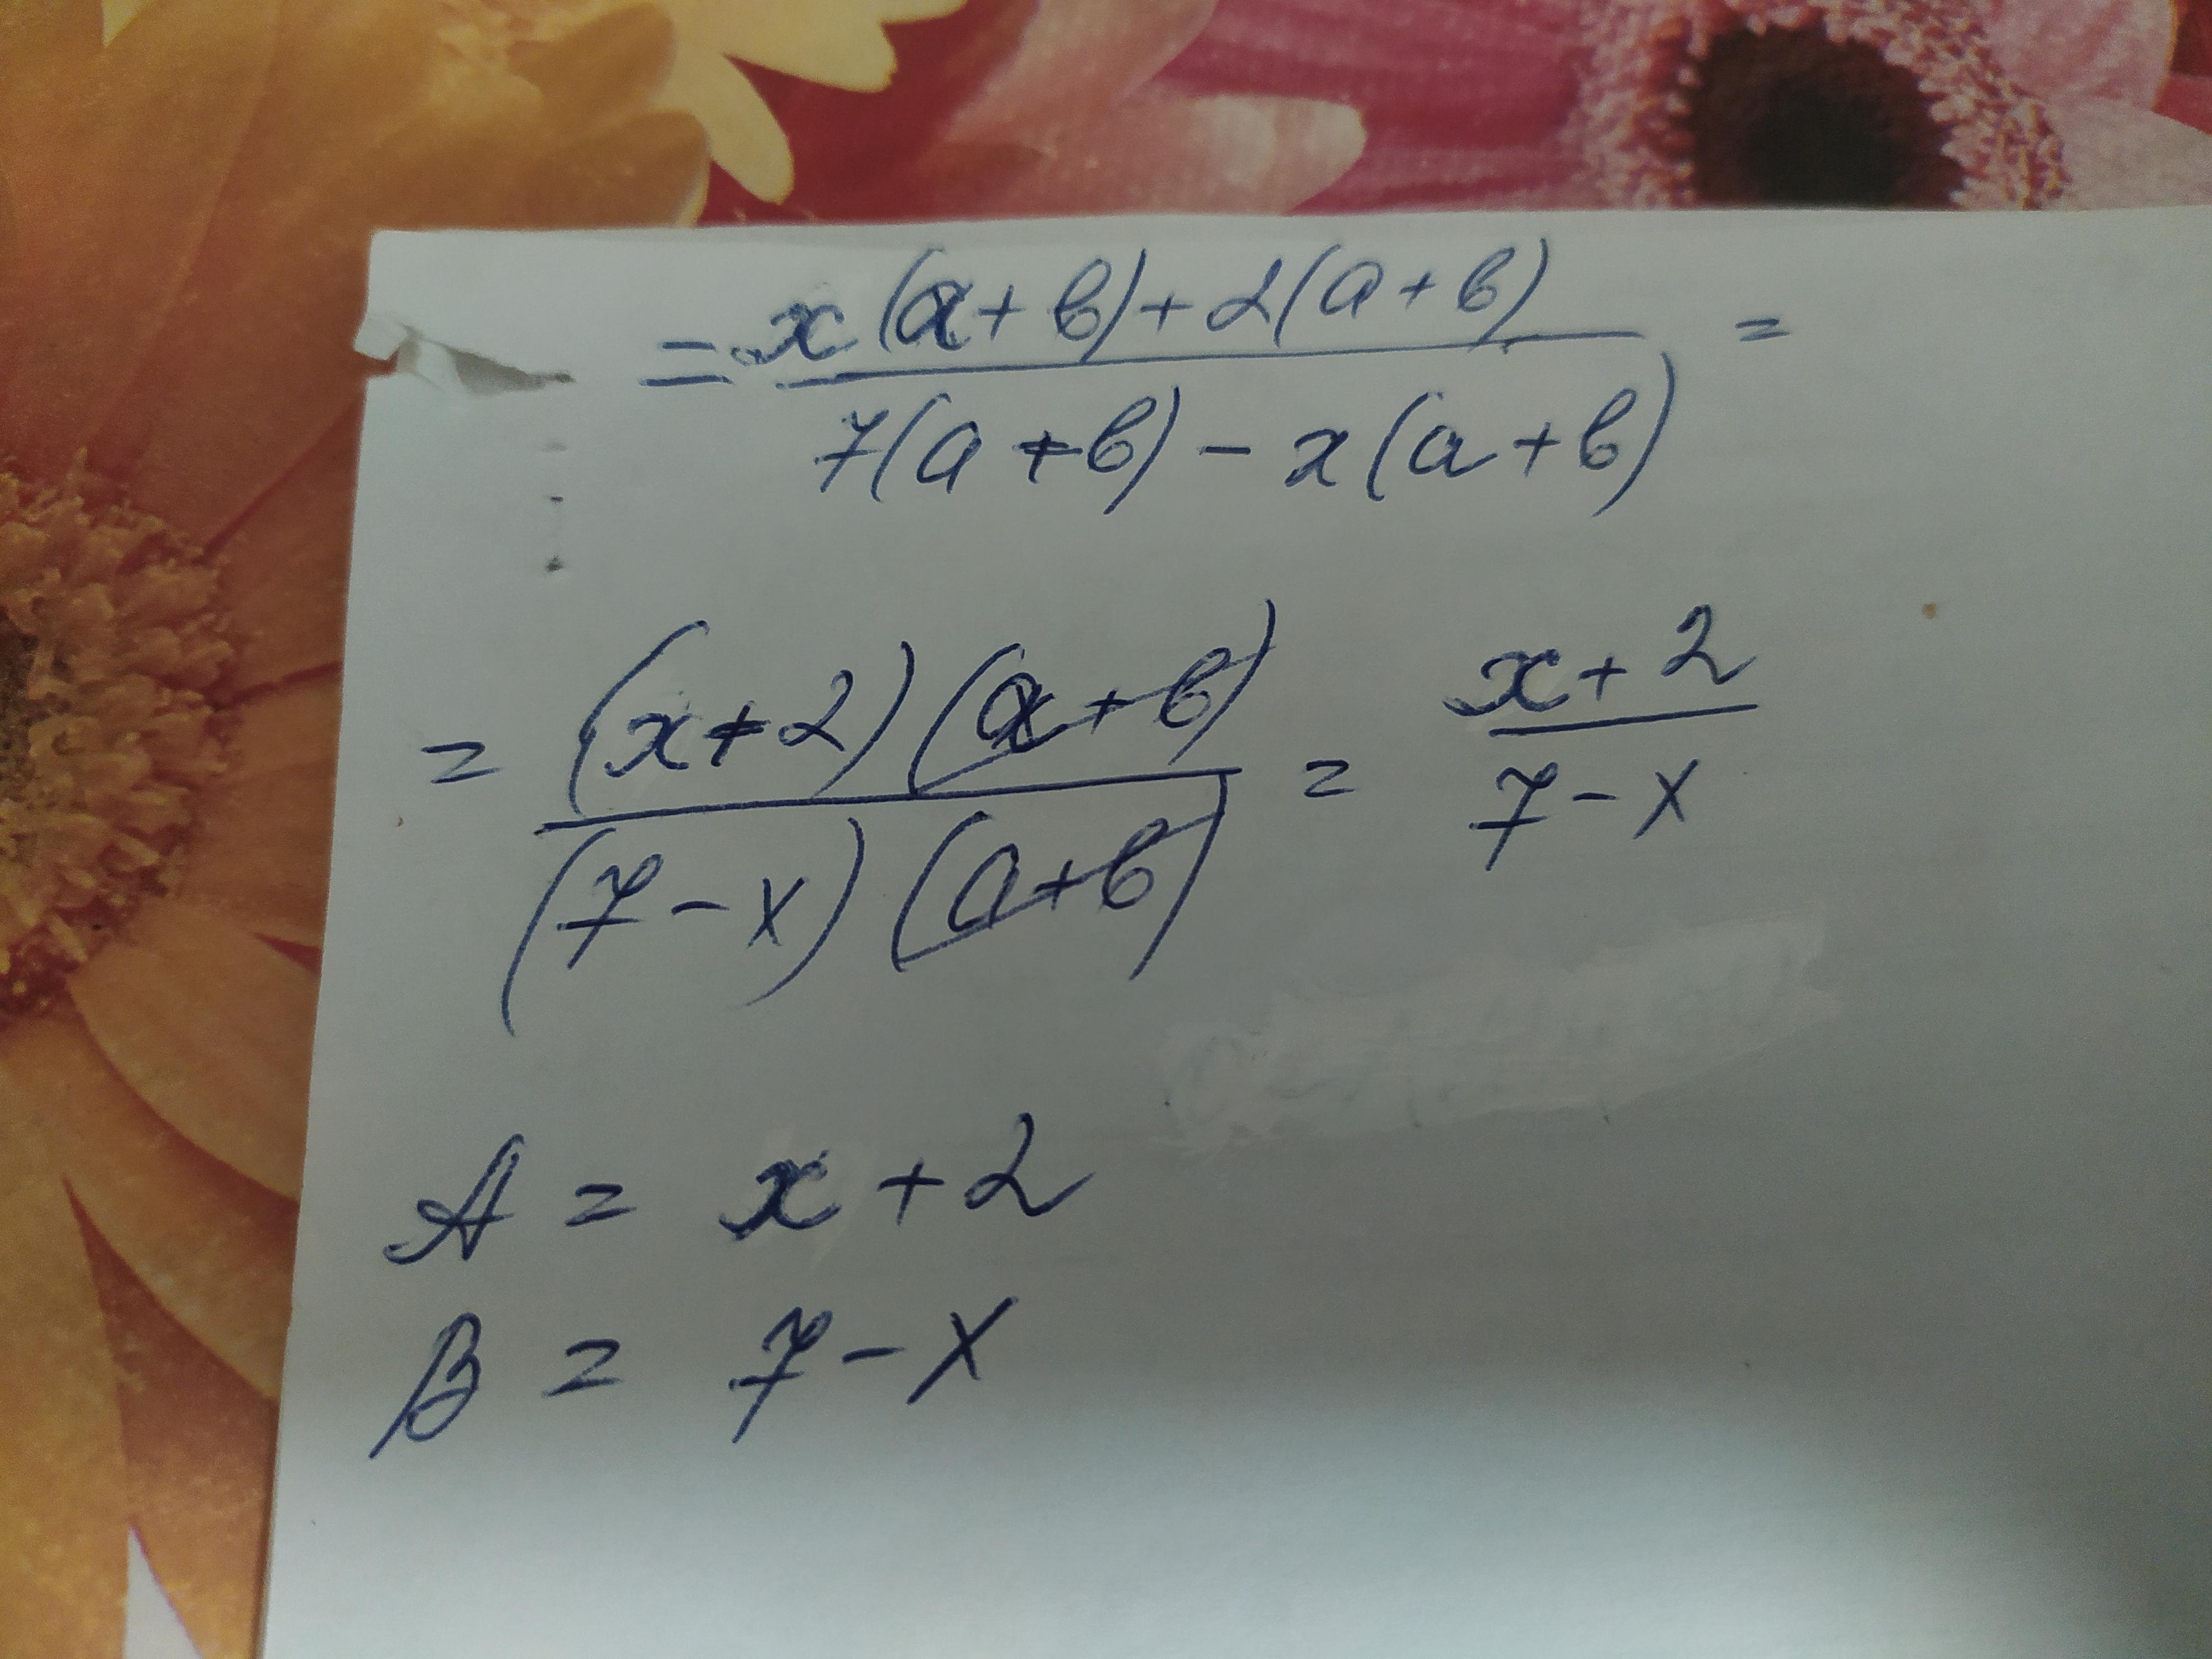 = x(a+b)+2(a+b) / 7(a+b)-x(a+b) =
= (x+2)(a+b) / (7-x)(a+b) = x+2 / 7-x
A = x+2
B = 7-x